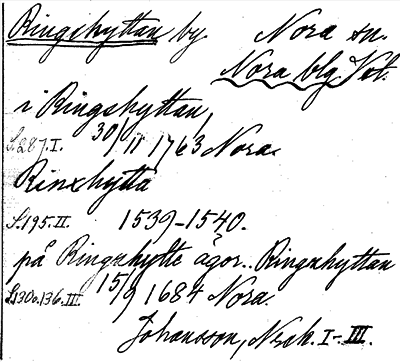 Ringshyttan by Nora sn.
Nora blg Vst.
i Ringshyttan,
S.287.I. 30/11 1763 Nora.
Rinxhytta
S.195.II. 1539-1540.
på Ringzhytte ägor.. Ringzhyttan
S.130o.136.III. 15/9 1684 Nora.
Johansson, I-III.